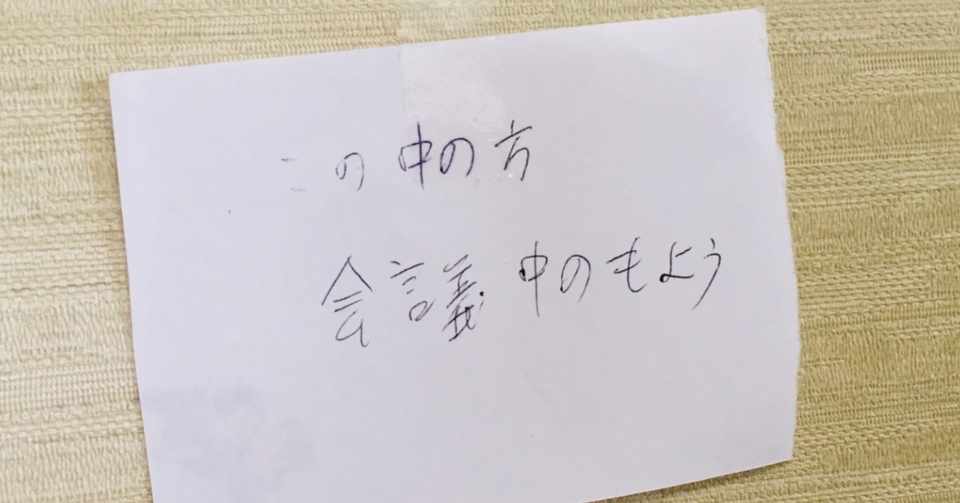 この中の方
会議中のもよう